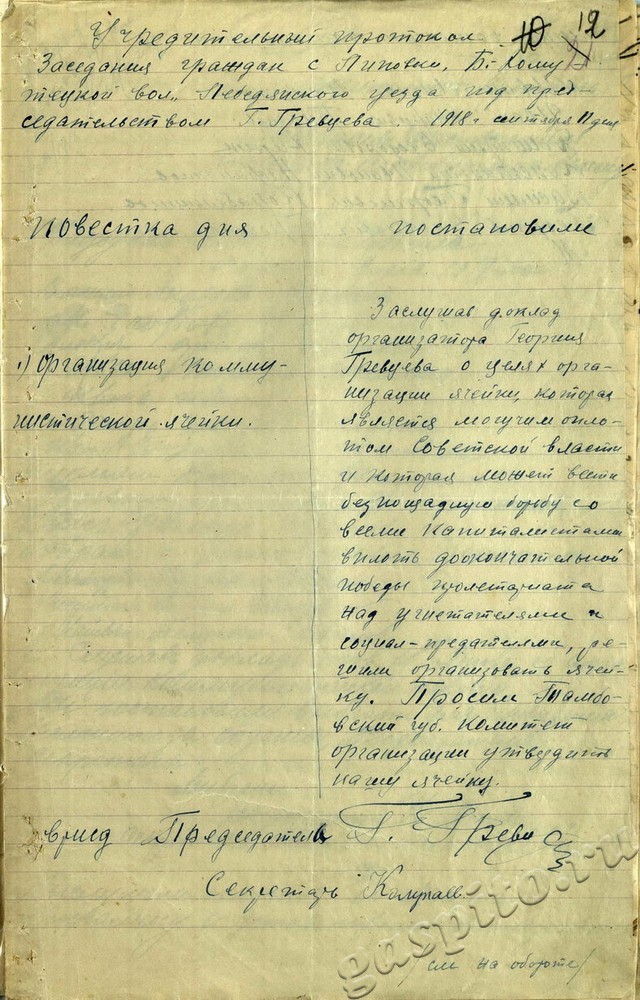 10 12
Учредительный протокол
Заседания граждан с Липовки, Б-Кому
тецкой вол., Лебедянского уезда под пред-
седательством Г. Гревцева. 1918 г сентября 11 дня
Повестка дня
постановили
1) Организация комму-
нистической ячейки.
Заслушав доклад
организатора Георгия
Гревцева о целях орга-
низации ячейки, которая
является могучим опло-
том Советской власти
и которая может вести
безпощадную борьбу со
всеми капиталистами
вплоть до окончательной
победы пролетариата
над угнетателями и
социал-предателями, ре-
шили организовать ячей-
ку. Просим Тамбо-
вский губ. комитет
организации утвердить
нашу ячейку.
врид Председатель Г. Гревц
Секретарь
/см на обороте/
gaspito.ru